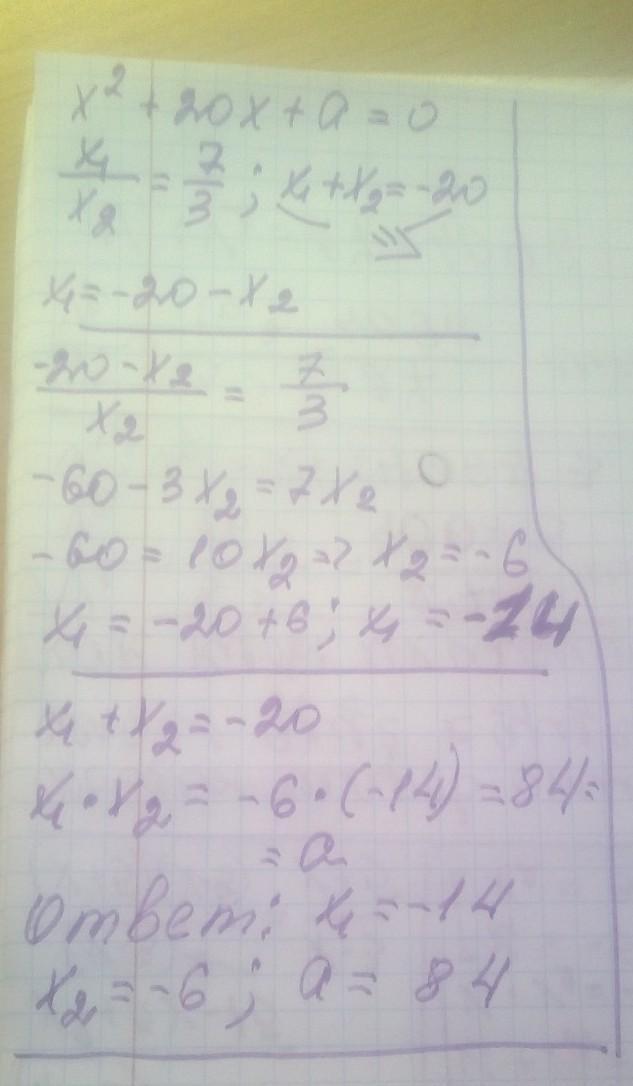 x² + 20x + a = 0
x₁/x₂ = 7/3; x₁ + x₂ = -20
=>
x₁ = -20 - x₂
(-20 - x₂)/x₂ = 7/3
-60 - 3x₂ = 7x₂
-60 = 10x₂ => x₂ = -6
x₁ = -20 + 6; x₁ = -14
x₁ + x₂ = -20
x₁ · x₂ = -6 · (-14) = 84 =
= a
Ответ: x₁ = -14
x₂ = -6; a = 84